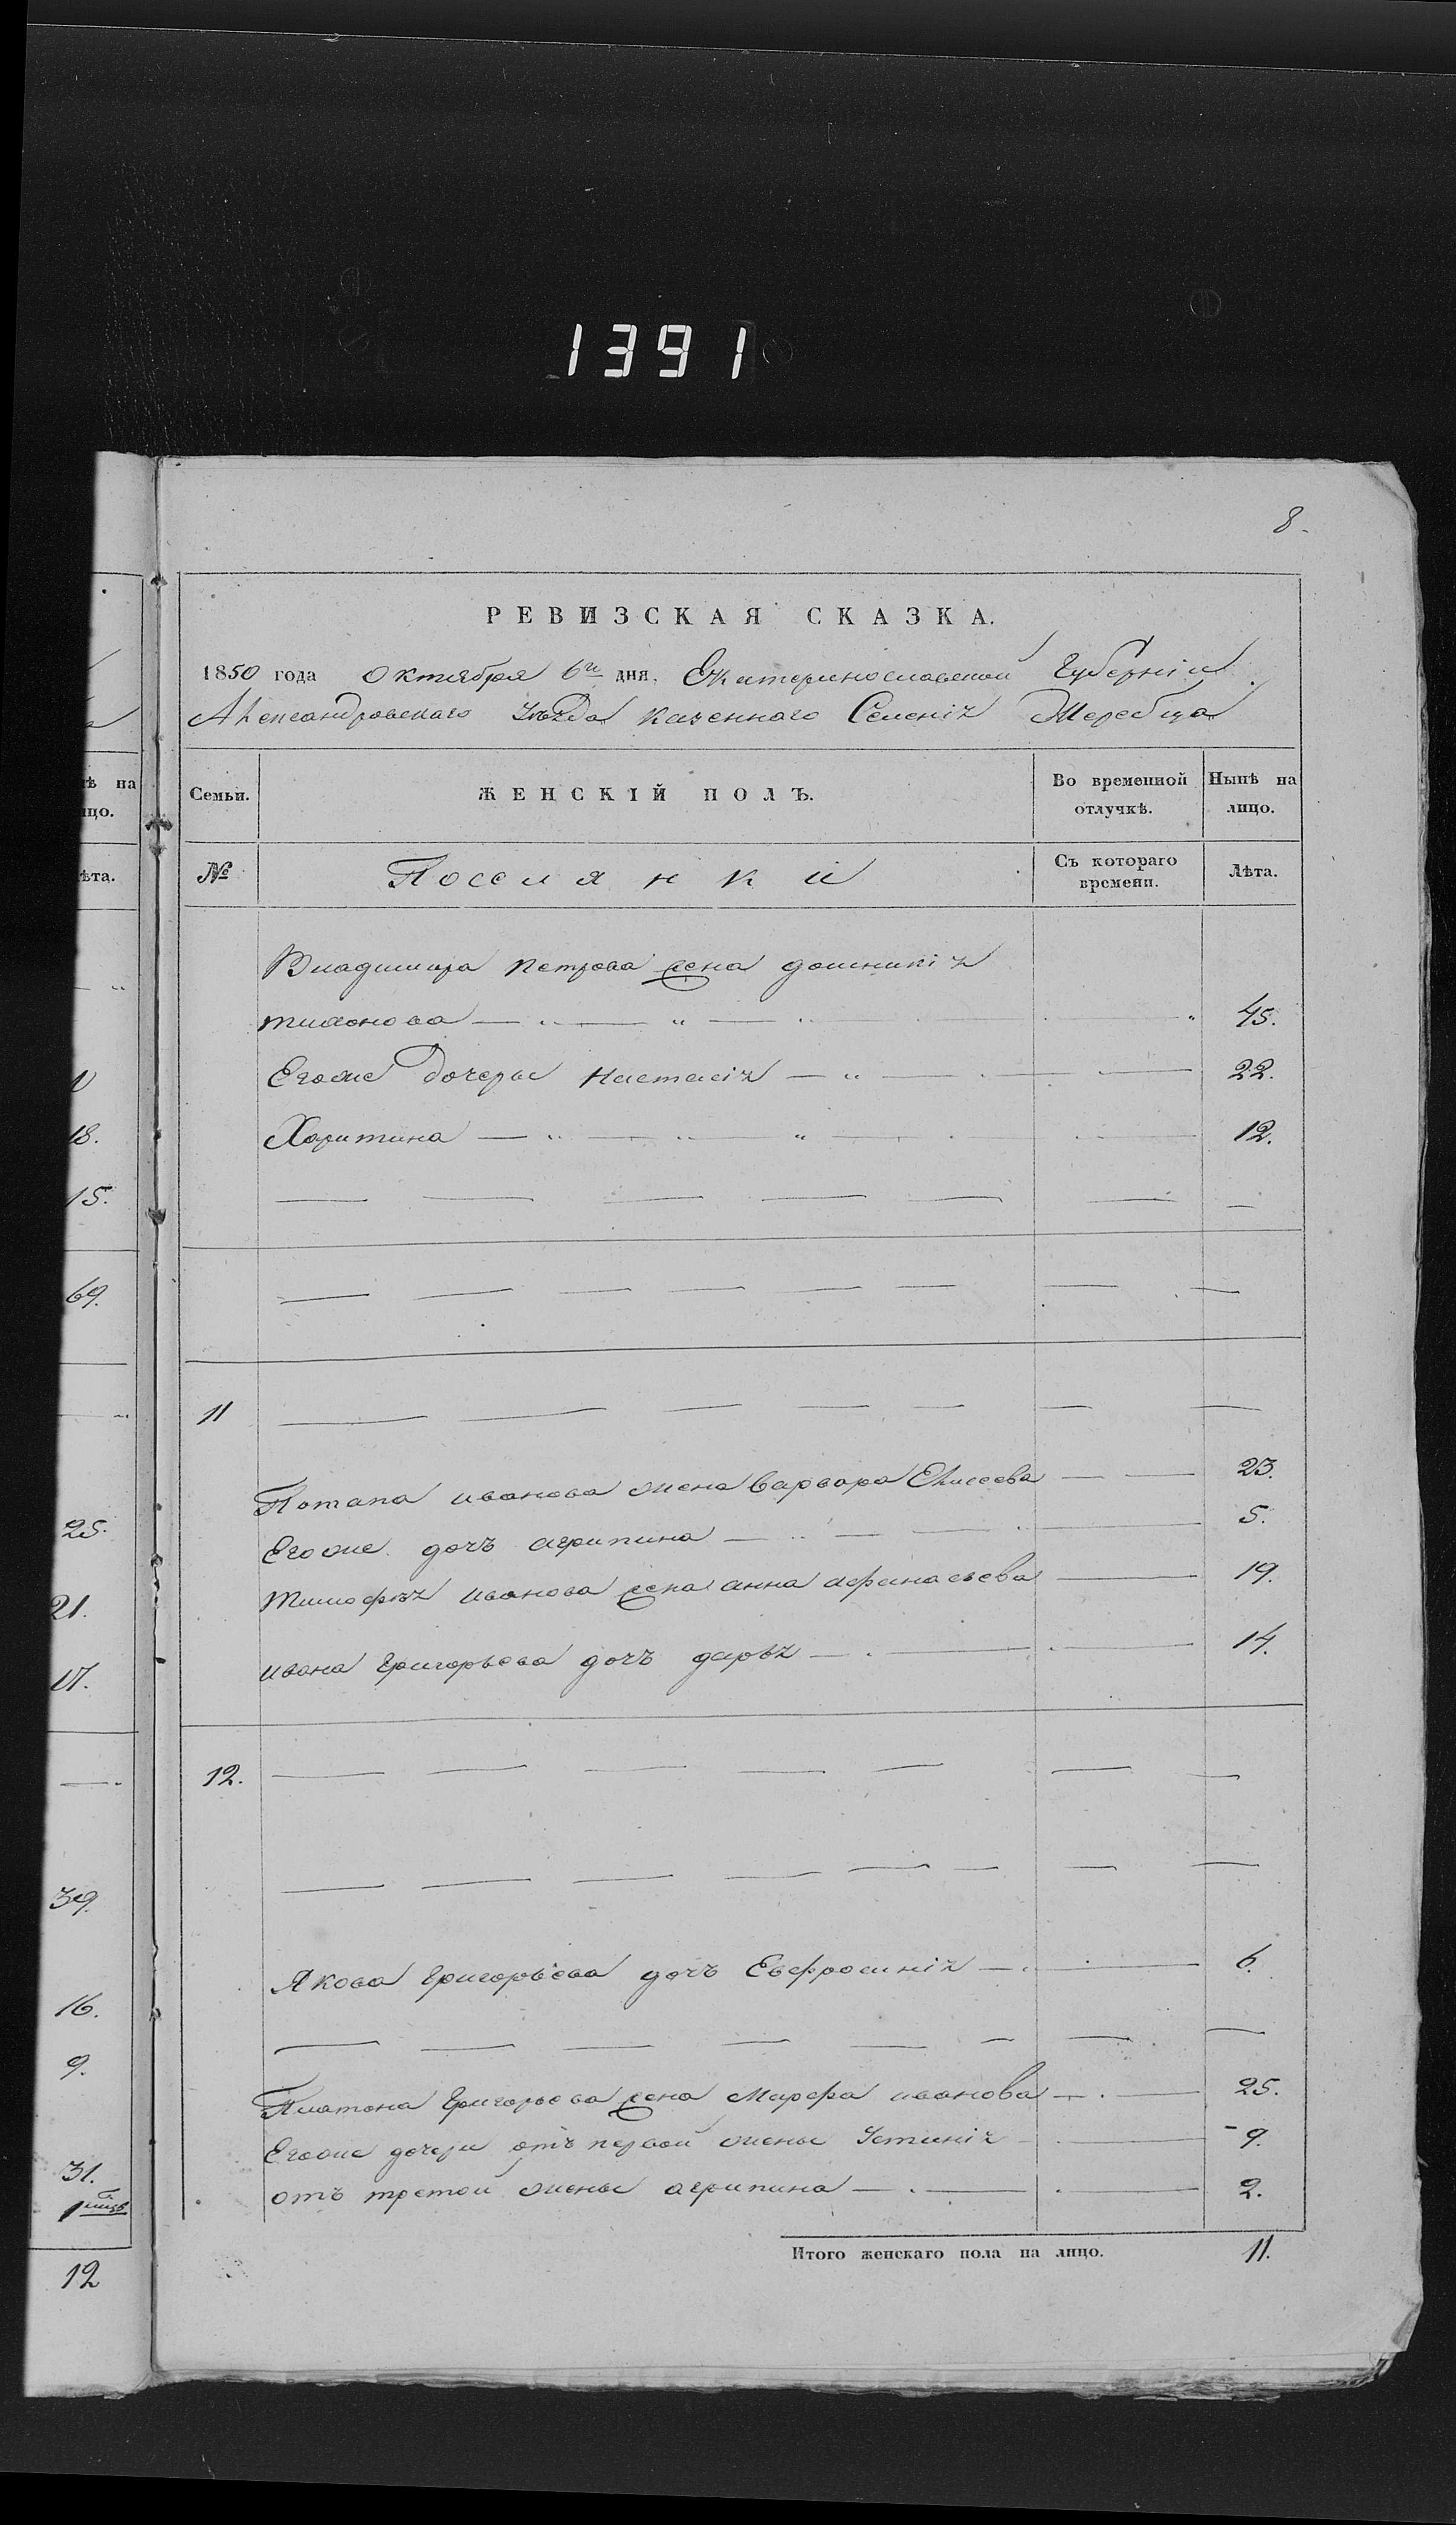 1391
8.
РЕВИЗСКАЯ СКАЗКА.
1850 года Октября 6го дня, Екатеринославской Губерніи
Александровскаго Уѣзда казеннаго Селенія Жеребца
Семьи. ЖЕНСКІЙ ПОЛЪ. Во временной отлучкѣ. Нынѣ на лицо.
№ Поселянки Съ котораго времени. Лѣта.
Владимира Петрова жена домникія
тихонова — „ — „ — 45.
Егоже дочеры Настасія — „ — 22.
Харитина — „ — „ — „ — 12.
11
Потапа иванова жена варвара Елисеева — 23.
Егоже дочъ агрипина — 5.
тимофѣя иванова жена анна афанасьева — 19.
ивана григорьева дочъ дарья — 14.
12.
Якова григорьева дочъ Евфросинія — 6.
Платона григорьева жена Марфа иванова — 25.
Егоже дочери отъ первой жены Устинія — 9.
отъ третой жены агрипина — 2.
Итого женскаго пола на лицо. 11.
ѣ на
цо.
ѣта.
18.
15.
69.
25.
21.
17.
39.
16.
9.
31.
12